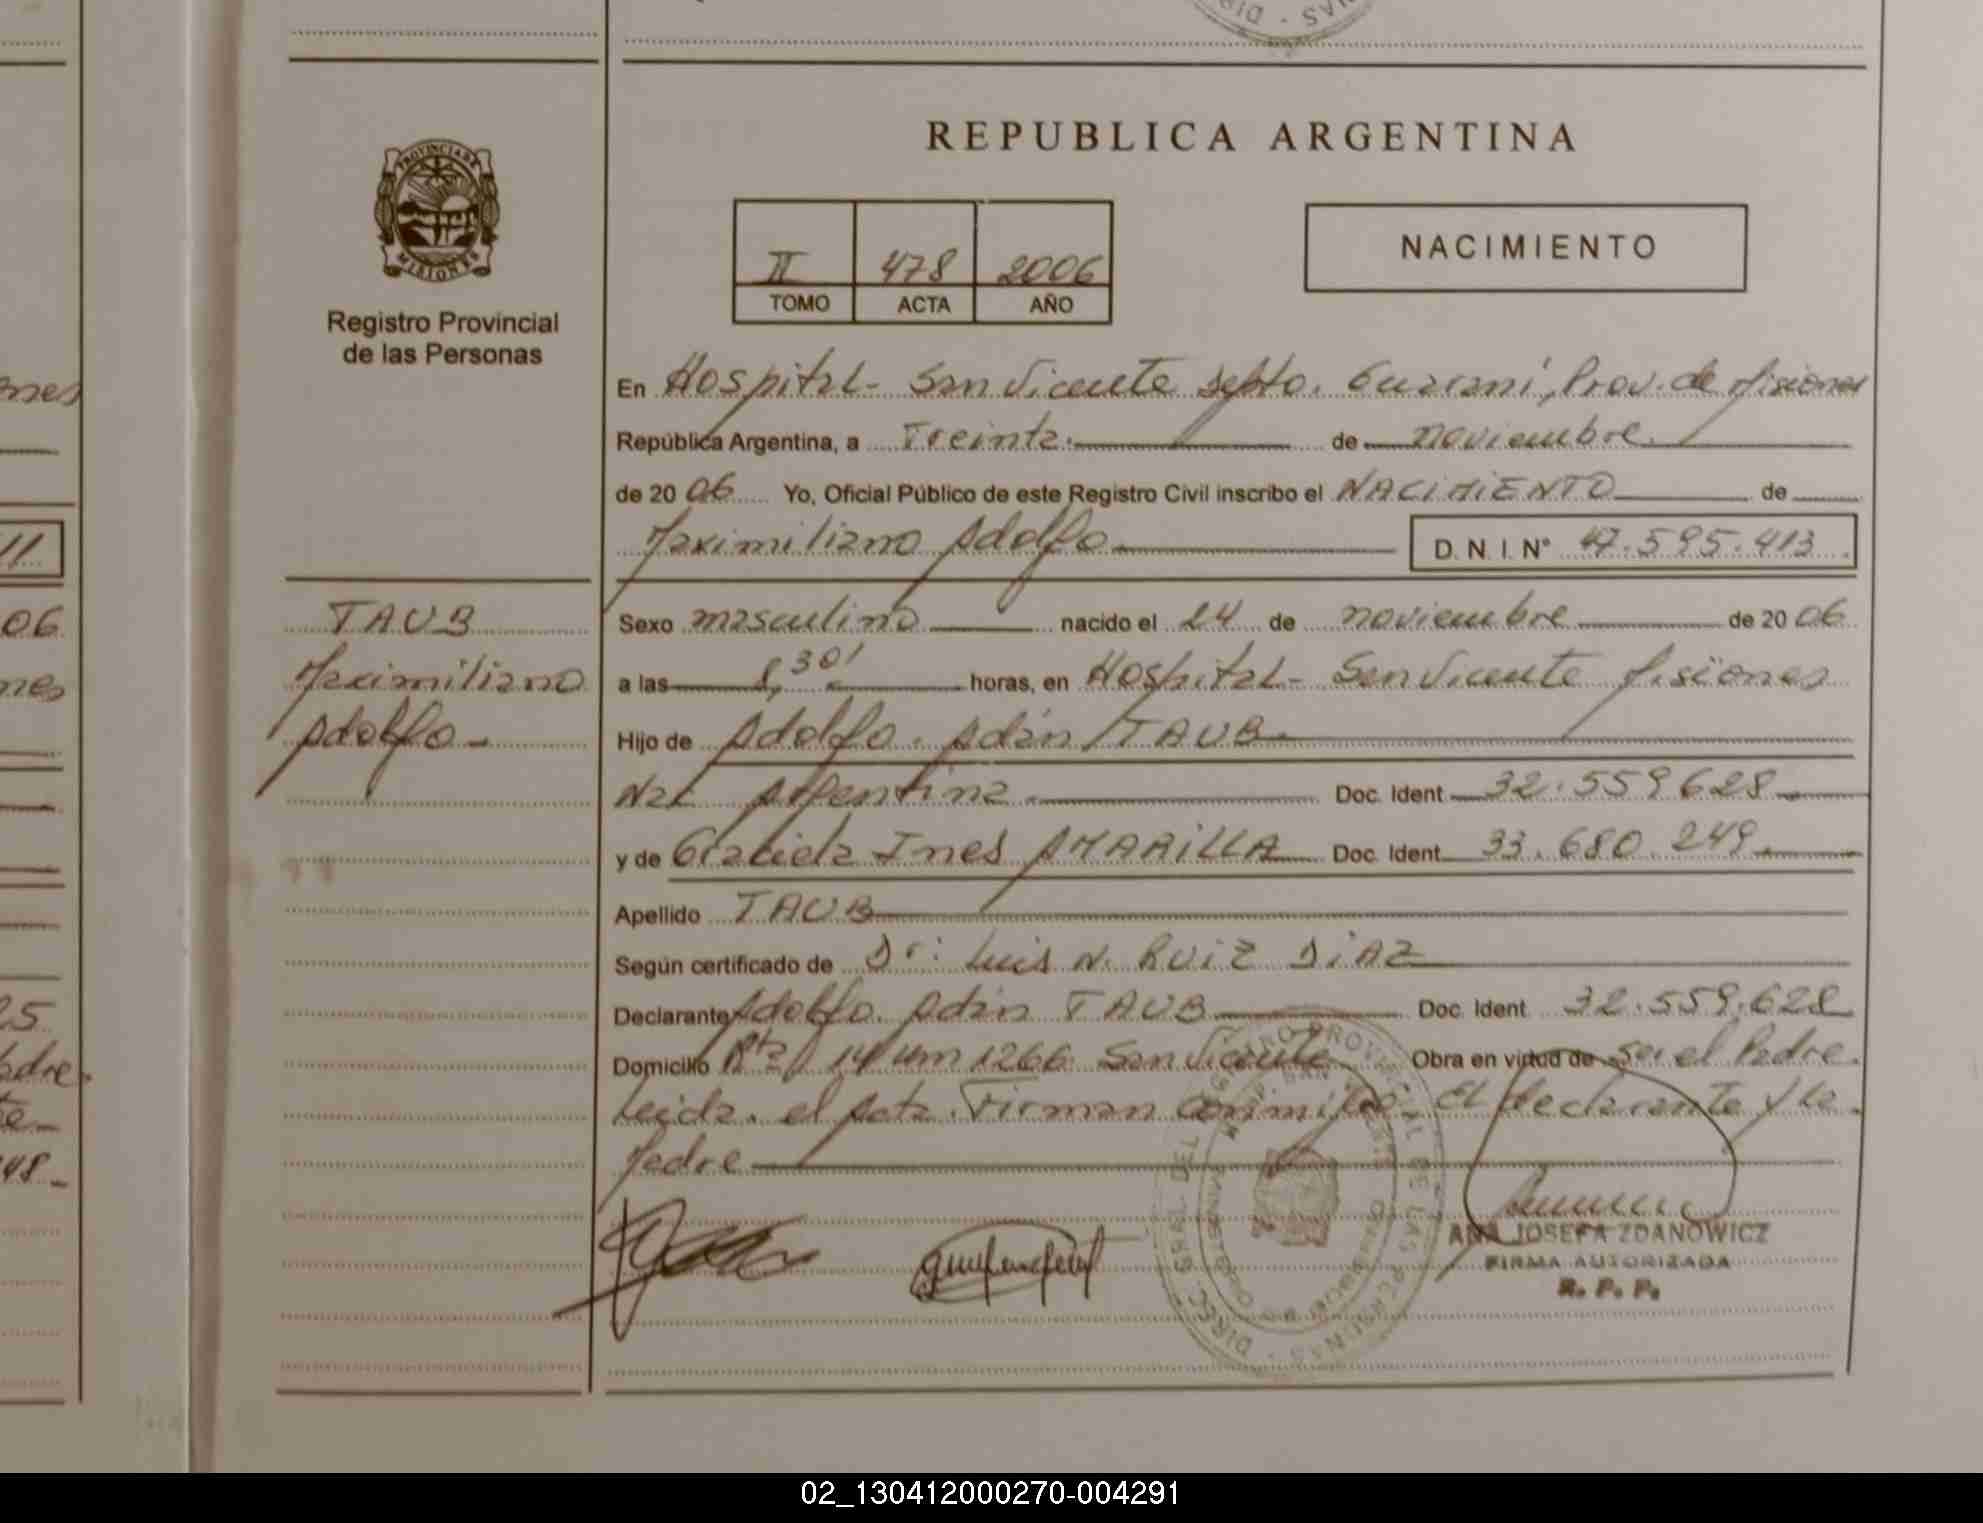 REPUBLICA ARGENTINA
PROVINCIA DE
MISIONES
Registro Provincial
de las Personas
II 478 2006
TOMO ACTA AÑO
NACIMIENTO
En Hospital - San Vicente Depto. Guaraní, Prov. de Misiones
República Argentina, a Treinta de noviembre
de 2006 Yo, Oficial Público de este Registro Civil inscribo el NACIMIENTO de
Maximiliano Adolfo D. N. I. N° 47.595.413
TAUB
Maximiliano
Adolfo -
Sexo masculino nacido el 24 de noviembre de 2006
a las 8,30' horas, en Hospital - San Vicente Misiones
Hijo de Adolfo Adán TAUB
Nac Argentina Doc. Ident 32.559.628
y de Graciela Ines AMARILLA Doc. Ident 33.680.249
Apellido TAUB
Según certificado de Dr: Luis N. RUIZ DIAZ
Declarante Adolfo Adán TAUB Doc. Ident 32.559.628
Domicilio Rta 14 Km 1266 San Vicente Obra en virtud de ser el Padre.
Leída el acta Firman conmigo El declarante y la
Madre
ANA JOSEFA ZDANOWICZ
FIRMA AUTORIZADA
R. P. P.
02_130412000270-004291